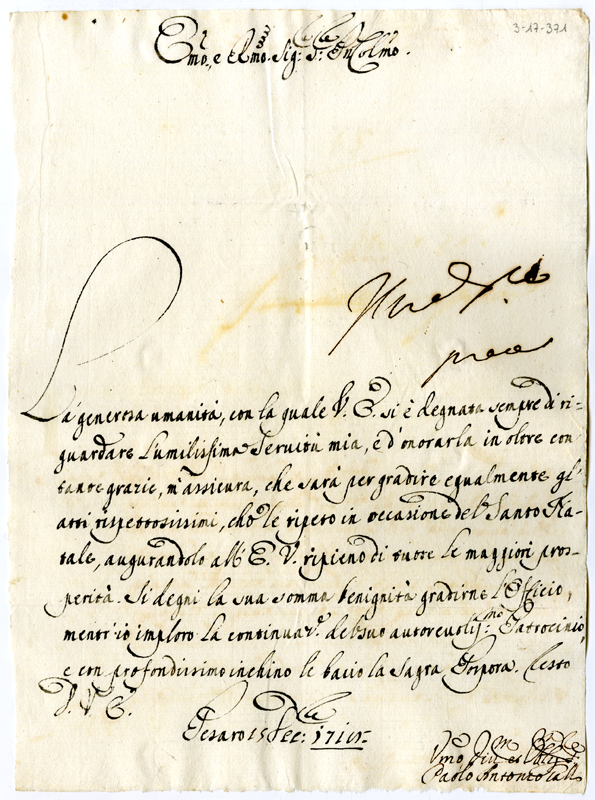 3-17-371
Emo., e Rmo. Sig: Sr: Pn Colmo.
La generosa umanità, con la quale V. E. si è degnata sempre di ri-
guardare l'umilissima servitù mia, e d'onorarla in oltre con
tante grazie, m'assicura, che sarà per gradire egualmente gl'
atti rispettosissimi, che le ripeto in occasione del Santo Na-
tale, augurandolo all' E. V. ripieno di tutte le maggiori pros-
perità. Si degni la sua somma benignità gradirne l'Officio,
mentr'io imploro la continuaz.e del suo autorevoliss:mo Patrocinio,
e con profondissimo inchino le bacio la Sagra Porpora. Resto
D. V. E.
Pesaro 15 Dec:
Paolo Antonio